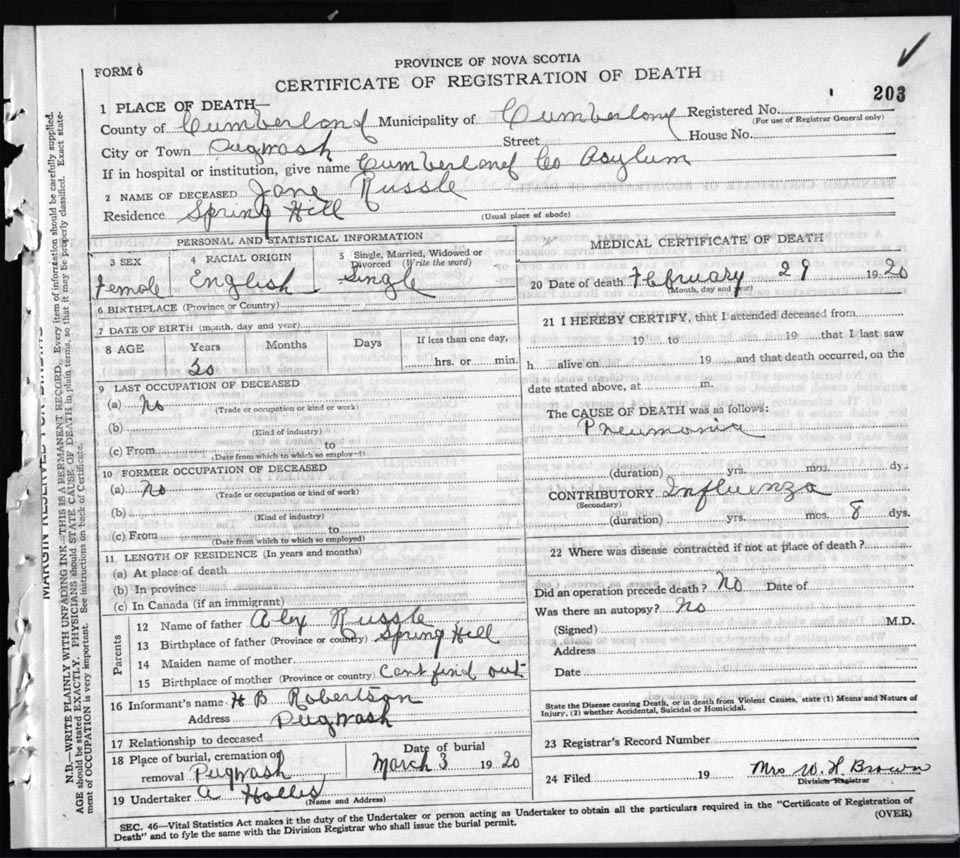 FORM 6
PROVINCE OF NOVA SCOTIA
CERTIFICATE OF REGISTRATION OF DEATH
203
1 PLACE OF DEATH—
County of Cumberland Municipality of Cumberland Registered No.
(For use of Registrar General only)
City or Town Pugwash Street House No.
If in hospital or institution, give name Cumberland Co Asylum
2 NAME OF DECEASED Jane Russle
Residence Spring Hill (Usual place of abode)
PERSONAL AND STATISTICAL INFORMATION
3 SEX 4 RACIAL ORIGIN 5 Single, Married, Widowed or Divorced (Write the word)
Female English Single
6 BIRTHPLACE (Province or Country)
7 DATE OF BIRTH (month, day and year)
8 AGE Years Months Days If less than one day,
hrs. or min.
9 LAST OCCUPATION OF DECEASED
(a) No
(Trade or occupation or kind or work)
(b)
(Kind of industry)
(c) From to
(Date from which to which so employed)
10 FORMER OCCUPATION OF DECEASED
(a) No
(Trade or occupation or kind of work)
(b)
(Kind of industry)
(c) From to
(Date from which to which so employed)
11 LENGTH OF RESIDENCE (In years and months)
(a) At place of death
(b) In province
(c) In Canada (if an immigrant)
Parents
12 Name of father Alex Russle
13 Birthplace of father (Province or country) Spring Hill
14 Maiden name of mother
15 Birthplace of mother (Province or country) Cant find out
16 Informant's name H B Robertson
Address Pugwash
17 Relationship to deceased
18 Place of burial, cremation or removal Pugwash
Date of burial
March 3 1920
19 Undertaker A Hollis
(Name and Address)
MEDICAL CERTIFICATE OF DEATH
20 Date of death February 29 1920
(Month, day and year)
21 I HEREBY CERTIFY, that I attended deceased from
19 to 19 that I last saw
h alive on 19 and that death occurred, on the
date stated above, at m.
The CAUSE OF DEATH was as follows:
Pneumonia
(duration) yrs. mos. dys
CONTRIBUTORY Influenza
(Secondary)
(duration) yrs. mos. 8 dys.
22 Where was disease contracted if not at place of death?
Did an operation precede death? No Date of
Was there an autopsy? No
(Signed) M.D.
Address
Date
State the Disease causing Death, or in death from Violent Causes, state (1) Means and Nature of
Injury, (2) whether Accidental, Suicidal or Homicidal.
23 Registrar's Record Number
24 Filed 19 Mrs W. H. Brown
Division Registrar
SEC. 46—Vital Statistics Act makes it the duty of the Undertaker or person acting as Undertaker to obtain all the particulars required in the "Certificate of Registration of
Death" and to fyle the same with the Division Registrar who shall issue the burial permit.
(OVER)
MARGIN RESERVED FOR BINDING
N.B.—WRITE PLAINLY WITH UNFADING INK—THIS IS A PERMANENT RECORD. Every item of information should be carefully supplied.
AGE should be stated EXACTLY. PHYSICIANS should STATE CAUSE OF DEATH in plain terms, so that it may be properly classified. Exact state-
ment of OCCUPATION is very important. See instructions on back of Certificate.